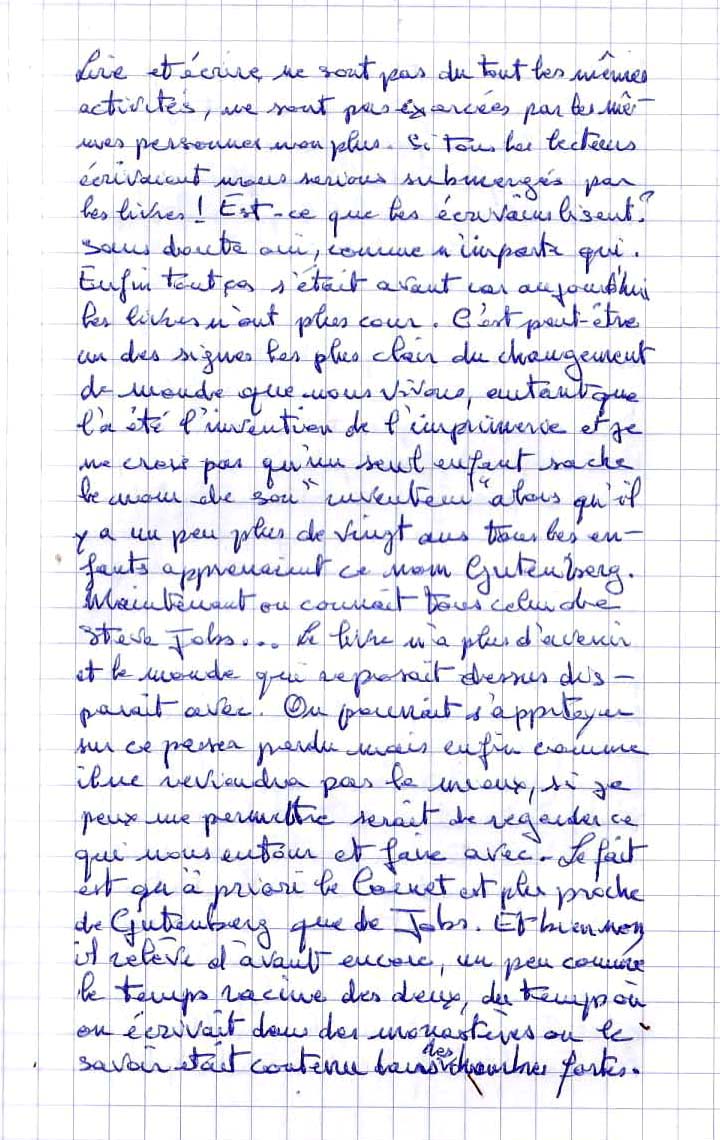 Lire et écrire, ne sont pas du tout les mêmes
activités, ne sont pas exercées par les mê-
mes personnes non plus. Si tous les lecteurs
écrivaient nous serions submergés par
les livres ! Est-ce que les écrivains lisent ?
sans doute oui, comme n'importe qui.
Enfin tout ça s'était avant car aujourd'hui
les livres n'ont plus cour. C'est peut-être
un des signes les plus clair du changement
de monde que nous vivons, autant que
l'a été l'invention de l'imprimerie et je
ne crois pas qu'un seul enfant sache
le nom de son "inventeur" alors qu'il
y a un peu plus de vingt ans tous les en-
fants apprenaient ce nom Gutenberg.
Maintenant on connaît tous celui de
Steve Jobs... Le livre n'a plus d'avenir
et le monde qui reposait dessus dis-
paraît avec. On pourrait s'appitoyer
sur ce passer perdu mais enfin comme
il ne reviendra pas le mieux, si je
peux me permettre serait de regarder ce
qui nous entour et faire avec. Le fait
est qu'à priori le Carnet est plus proche
de Gutenberg que de Jobs. Et bien non
il relève d'avant encore, un peu comme
le temps racine des deux, du temps où
on écrivait dans des monastères ou le
savoir était contenu dans des chambres fortes.